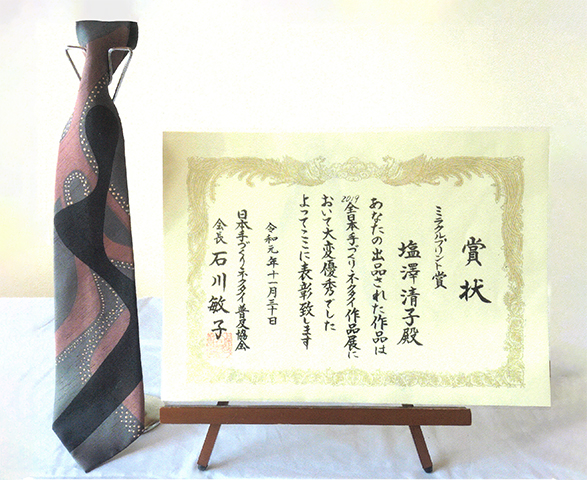 賞状
ミラクルプリント賞
塩澤清子殿
あなたの出品された作品は
2019全日本手づくりネクタイ作品展に
おいて大変優秀でした
よってここに表彰致します
令和元年十一月三十日
日本手づくりネクタイ普及協会
会長 石川敏子